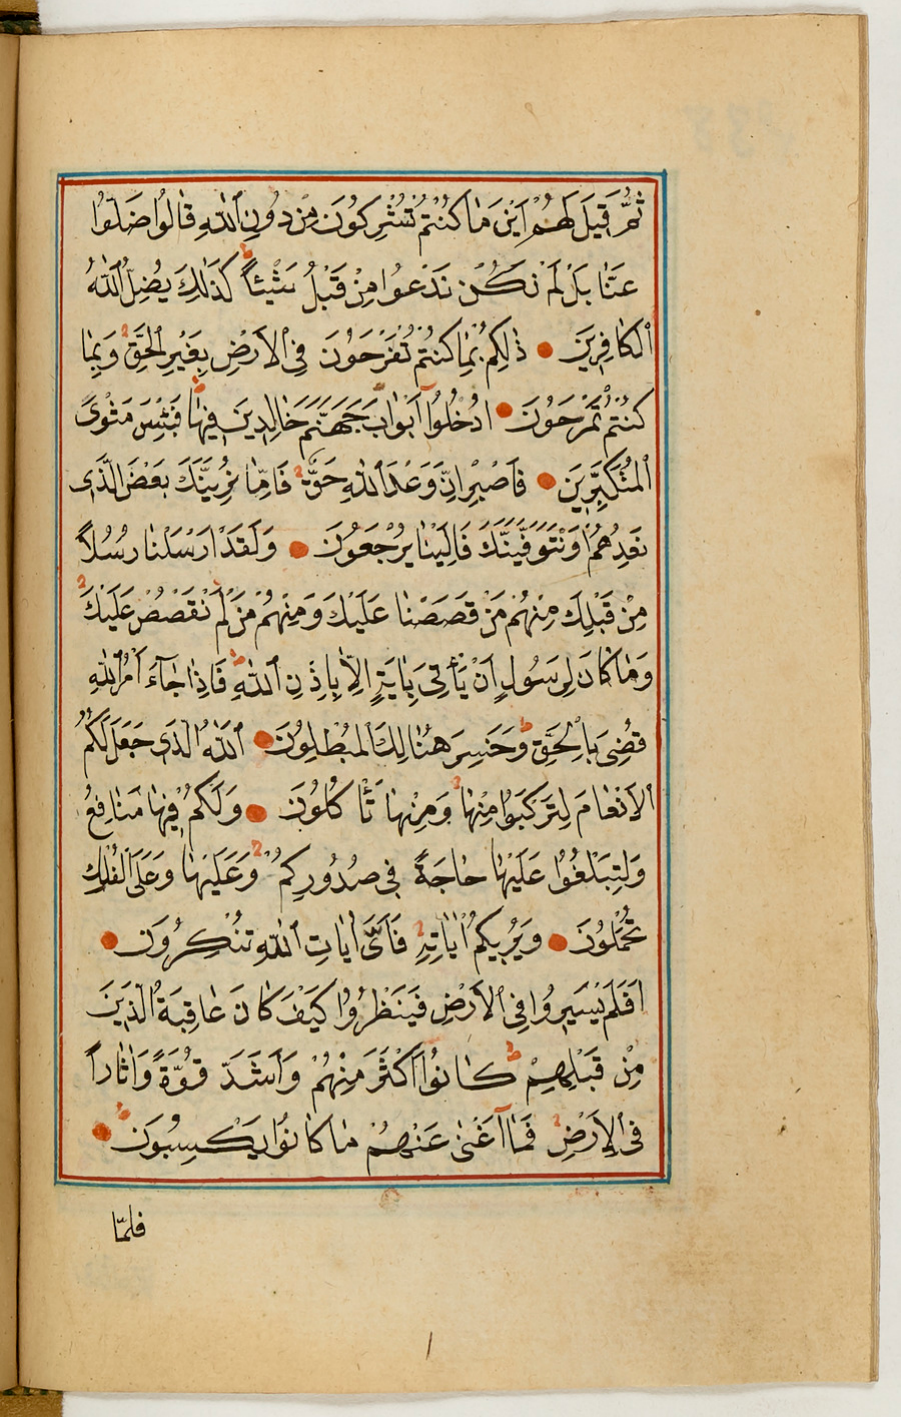 ثُمَّ قِيلَ لَهُمْ اَيْنَ مَا كُنْتُمْ تُشْرِكُونَ مِنْ دُونِ اللّٰهِ قَالُوا ضَلُّوا
عَنَّا بَلْ لَمْ نَكُنْ نَدْعُوا مِنْ قَبْلُ شَيْئاً كَذٰلِكَ يُضِلُّ اللّٰهُ
الْكَافِرِينَ ● ذٰلِكُمْ بِمَا كُنْتُمْ تَفْرَحُونَ فِي الْاَرْضِ بِغَيْرِ الْحَقِّ وَبِمَا
كُنْتُمْ تَمْرَحُونَ ● اُدْخُلُوا اَبْوَابَ جَهَنَّمَ خَالِدِينَ فِيهَا فَبِئْسَ مَثْوَى
الْمُتَكَبِّرِينَ ● فَاصْبِرْ اِنَّ وَعْدَ اللّٰهِ حَقٌّ فَاِمَّا نُرِيَنَّكَ بَعْضَ الَّذِي
نَعِدُهُمْ اَوْ نَتَوَفَّيَنَّكَ فَاِلَيْنَا يُرْجَعُونَ ● وَلَقَدْ اَرْسَلْنَا رُسُلاً
مِنْ قَبْلِكَ مِنْهُمْ مَنْ قَصَصْنَا عَلَيْكَ وَمِنْهُمْ مَنْ لَمْ نَقْصُصْ عَلَيْكَ
وَمَا كَانَ لِرَسُولٍ اَنْ يَأْتِيَ بِاٰيَةٍ اِلَّا بِاِذْنِ اللّٰهِ فَاِذَا جَآءَ اَمْرُ اللّٰهِ
قُضِيَ بِالْحَقِّ وَخَسِرَ هُنَالِكَ الْمُبْطِلُونَ ● اَللّٰهُ الَّذِي جَعَلَ لَكُمُ
الْاَنْعَامَ لِتَرْكَبُوا مِنْهَا وَمِنْهَا تَأْكُلُونَ ● وَلَكُمْ فِيهَا مَنَافِعُ
وَلِتَبْلُغُوا عَلَيْهَا حَاجَةً فِي صُدُورِكُمْ وَعَلَيْهَا وَعَلَى الْفُلْكِ
تُحْمَلُونَ ● وَيُرِيكُمْ اٰيَاتِهِ فَاَيَّ اٰيَاتِ اللّٰهِ تُنْكِرُونَ ●
اَفَلَمْ يَسِيرُوا فِي الْاَرْضِ فَيَنْظُرُوا كَيْفَ كَانَ عَاقِبَةُ الَّذِينَ
مِنْ قَبْلِهِمْ كَانُوا اَكْثَرَ مِنْهُمْ وَاَشَدَّ قُوَّةً وَاٰثَاراً
فِي الْاَرْضِ فَمَا اَغْنٰى عَنْهُمْ مَا كَانُوا يَكْسِبُونَ ●
فلمّا